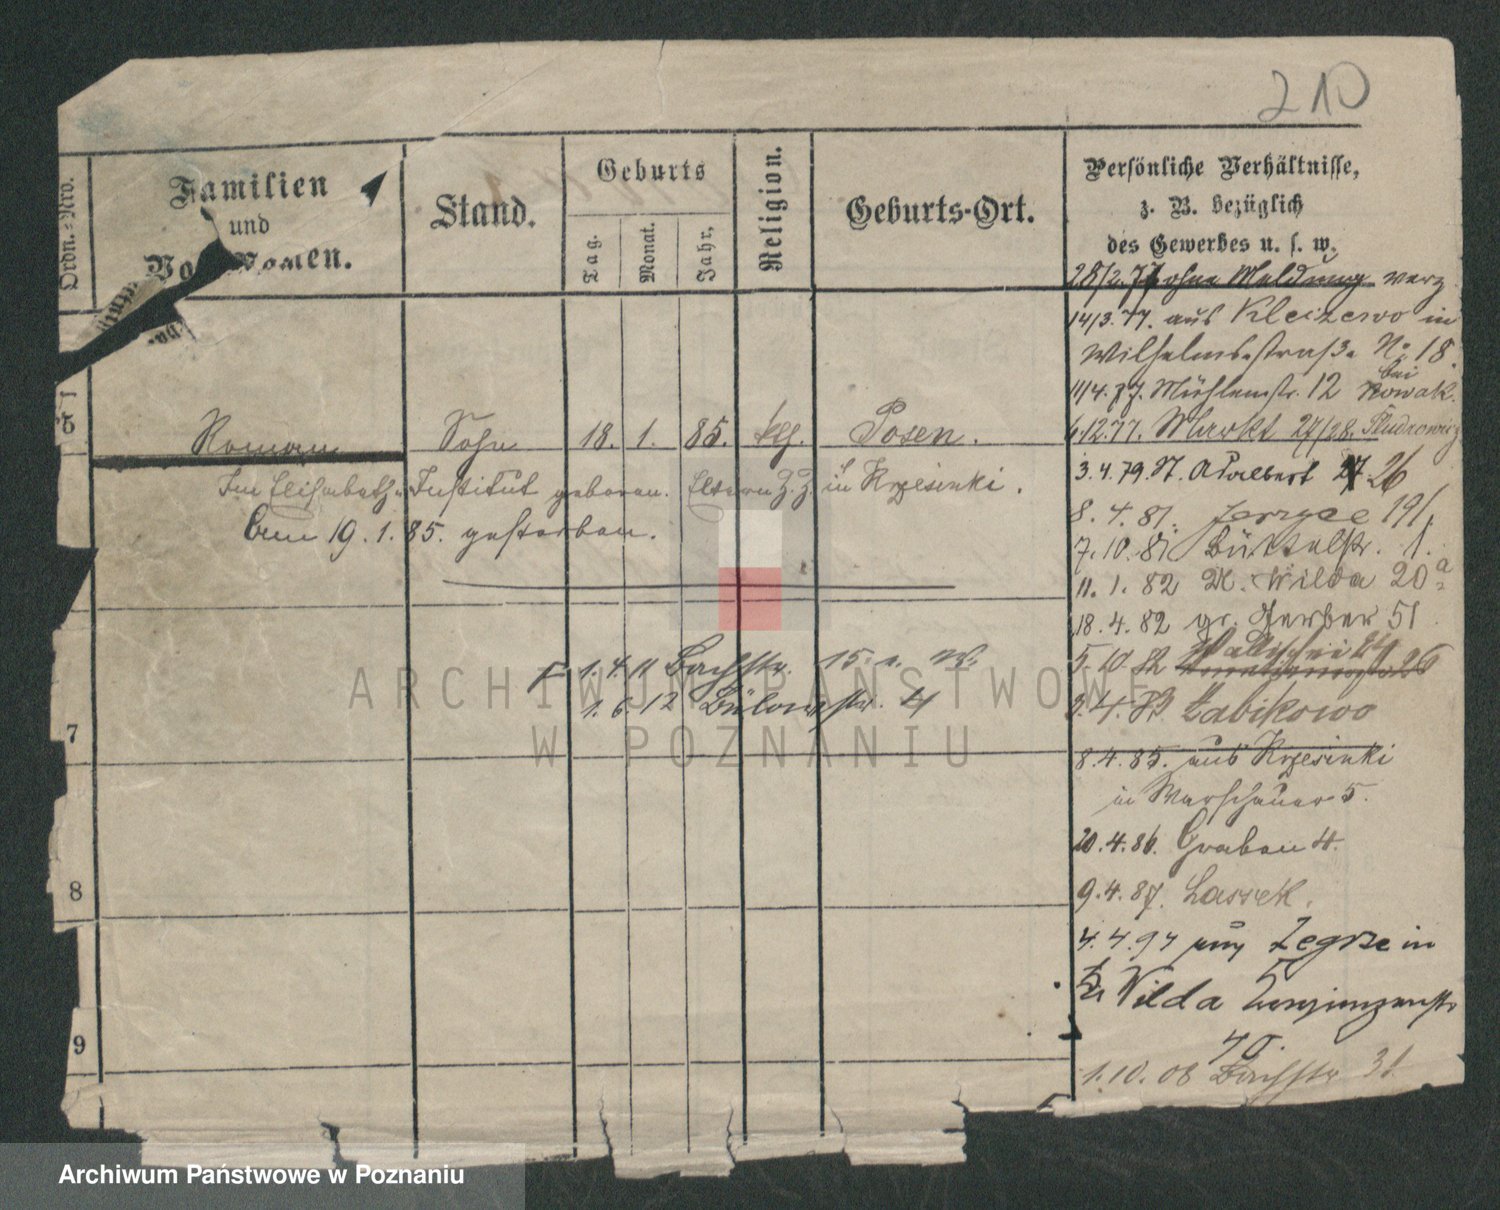 210
Ordn.-Nro.
Familien
und
Vor-Namen.
Stand.
Geburts
Tag.
Monat.
Jahr.
Religion.
Geburts-Ort.
Persönliche Verhältnisse,
z. B. bezüglich
des Gewerbes u. s. w.
28/2.77 ohne Meldung verz
14/3.77. aus Kleizewo in
Wilhelmsstraß. No 18.
11/4.77. Mühlenstr. 12 bei Nowak.
6.12.77. Markt 27/28.
3.4.79 St. Adalbert 26
8.4.81. Jerzyce 191.
7.10.81 Büttelstr. 1.
11.1.82 St. Wilda 20a
18.4.82 gr. Gerber 51
5.10.82 Wallischei
3.4.83 Zabikowo
8.4.85. aus Krzesinki
in Warschauer 5.
20.4.86. Graben 4.
9.4.87. Lassek.
4.4.97 aus Zegrze in
Wilda
40.
1.10.08 Bachstr 31
5
Roman Sohn 18. 1. 85. kth. Posen.
Im Elisabeth-Institut geboren. Eltern z. Z. in Krzesinki.
Am 19.1.85. gestorben.
1.4.11 Bachstr. 15.
1.6.12 Bülowstr. 4
7
8
9
ARCHIWUM PAŃSTWOWE
W POZNANIU
Archiwum Państwowe w Poznaniu